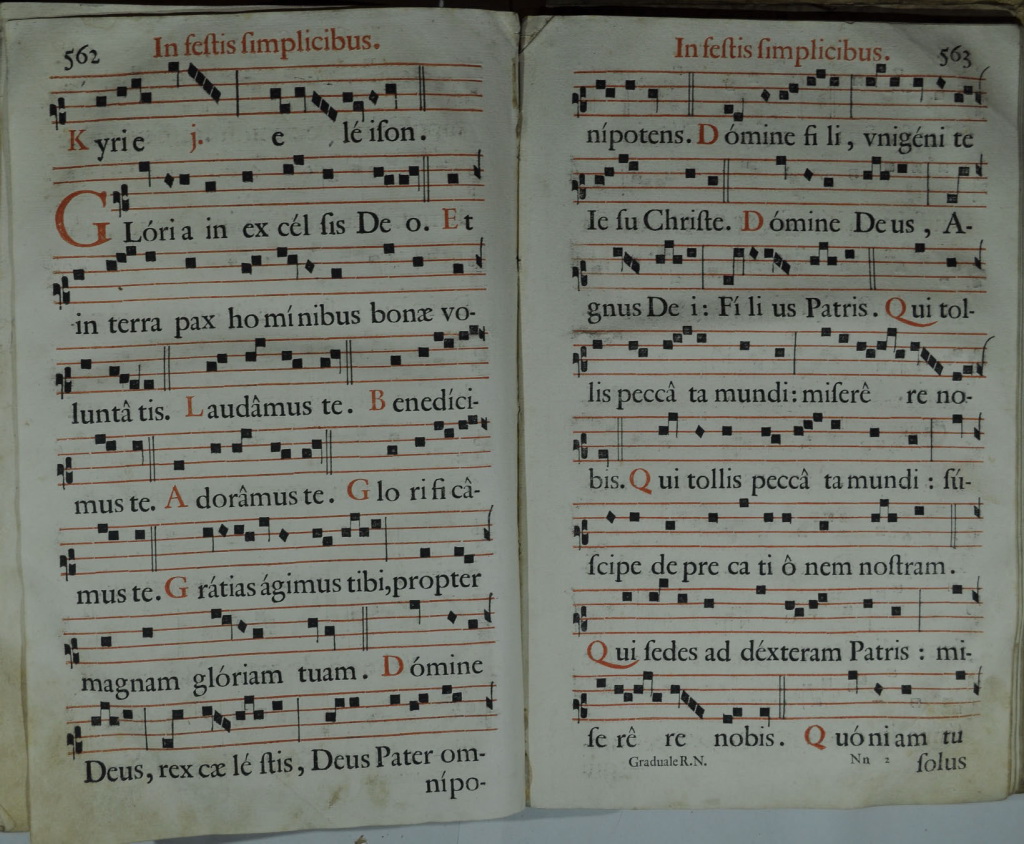 562
In feſtis ſimplicibus.
Kyrie j. e léiſon.
GLória in excélſis Deo. Et
in terra pax homínibus bonæ vo-
luntâtis. Laudâmus te. Benedíci-
mus te. Adorâmus te. Glorificâ-
mus te. Grátias ágimus tibi, propter
magnam glóriam tuam. Dómine
Deus, rex cæléſtis, Deus Pater om-
nípo-
In feſtis ſimplicibus.
563
nípotens. Dómine fili, vnigénite
Ieſu Chriſte. Dómine Deus, A-
gnus Dei: Fílius Patris. Qui tol-
lis peccâta mundi: miſerêre no-
bis. Qui tollis peccâta mundi: ſú-
ſcipe deprecatiônem noſtram.
Qui ſedes ad déxteram Patris: mi-
ſerêre nobis. Quóniam tu
Graduale R.N.
Nn 2
ſolus